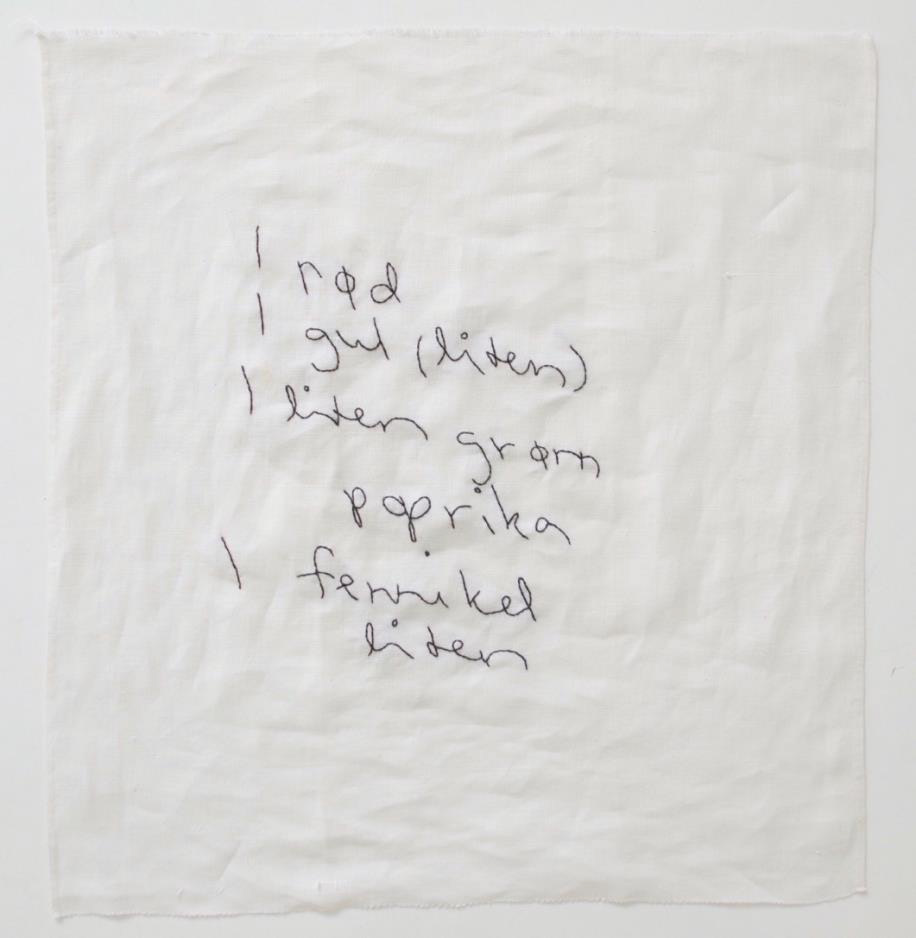 1 rød
1 gul (liten)
1 liten grønn
paprika
1 fennikel
liten